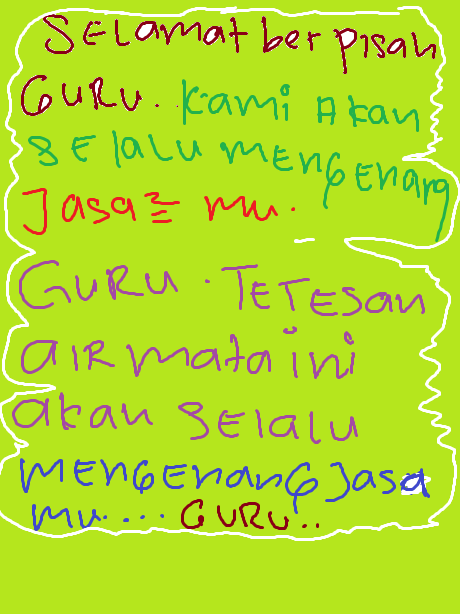 SELamat berpisah
GURU.. Kami Akan
SElaLU MENGENang
Jasa2 mu.
GURU. TETESan
AIRmata ini
akan SElalu
MENGENANG Jasa
mu.... GURU..